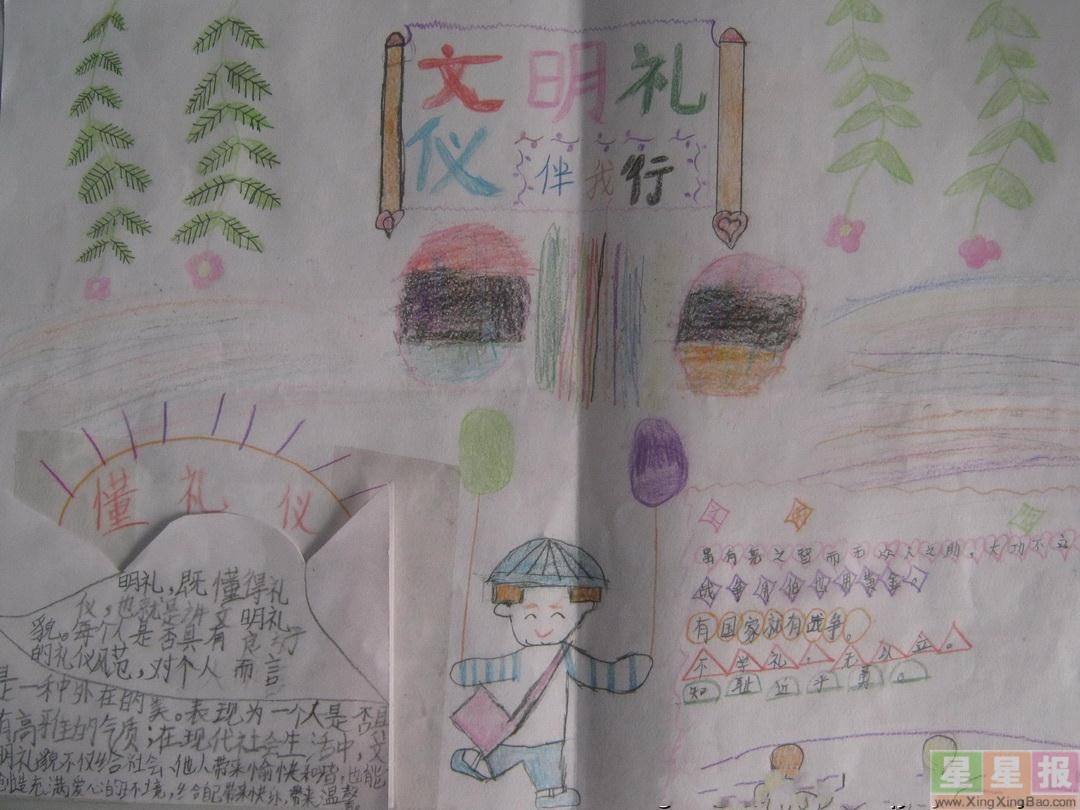 文明礼
仪伴我行
懂礼仪
明礼,既懂得礼
仪,也就是讲文明礼
貌。每个人是否具有良好
的礼仪风范,对个人而言
是一种外在的美。表现为一个人是否具
有高雅的气质;在现代社会生活中,文
明礼貌不仅给社会、他人带来愉快和谐,也能
创造充满爱心的环境,给自己带来快乐,带来温馨
虽有尧之智而无众人之助,大功不立
战争
黄金。
有国家就有战争。
不学礼,无以立。
知耻近乎勇。
星星报
www.XingXingBao.com